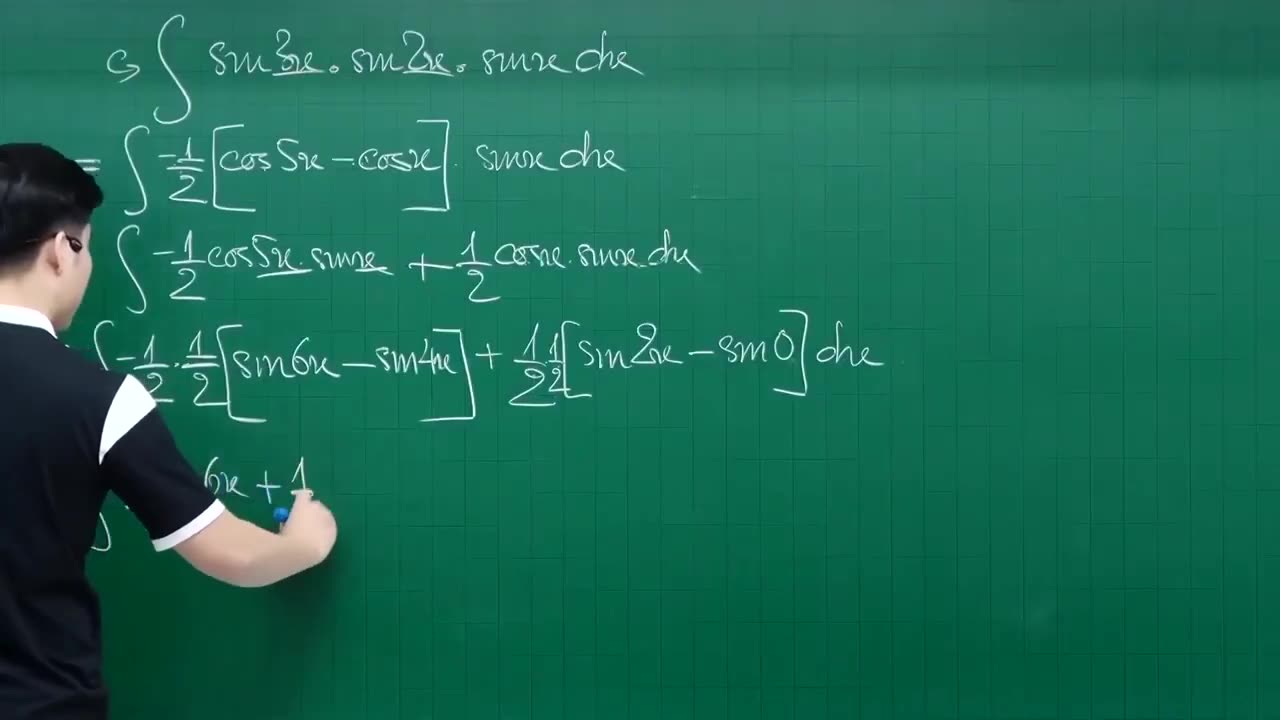 c, ∫ sin3x . sin2x . sinx dx
= ∫ -1/2 [cos5x - cosx] . sinx dx
∫ -1/2 cos5x . sinx + 1/2 cosx . sinx . dx
∫ -1/2 . 1/2 [sin6x - sin4x] + 1/2 1/2 [sin2x - sin0] dx
∫ 6x + 1